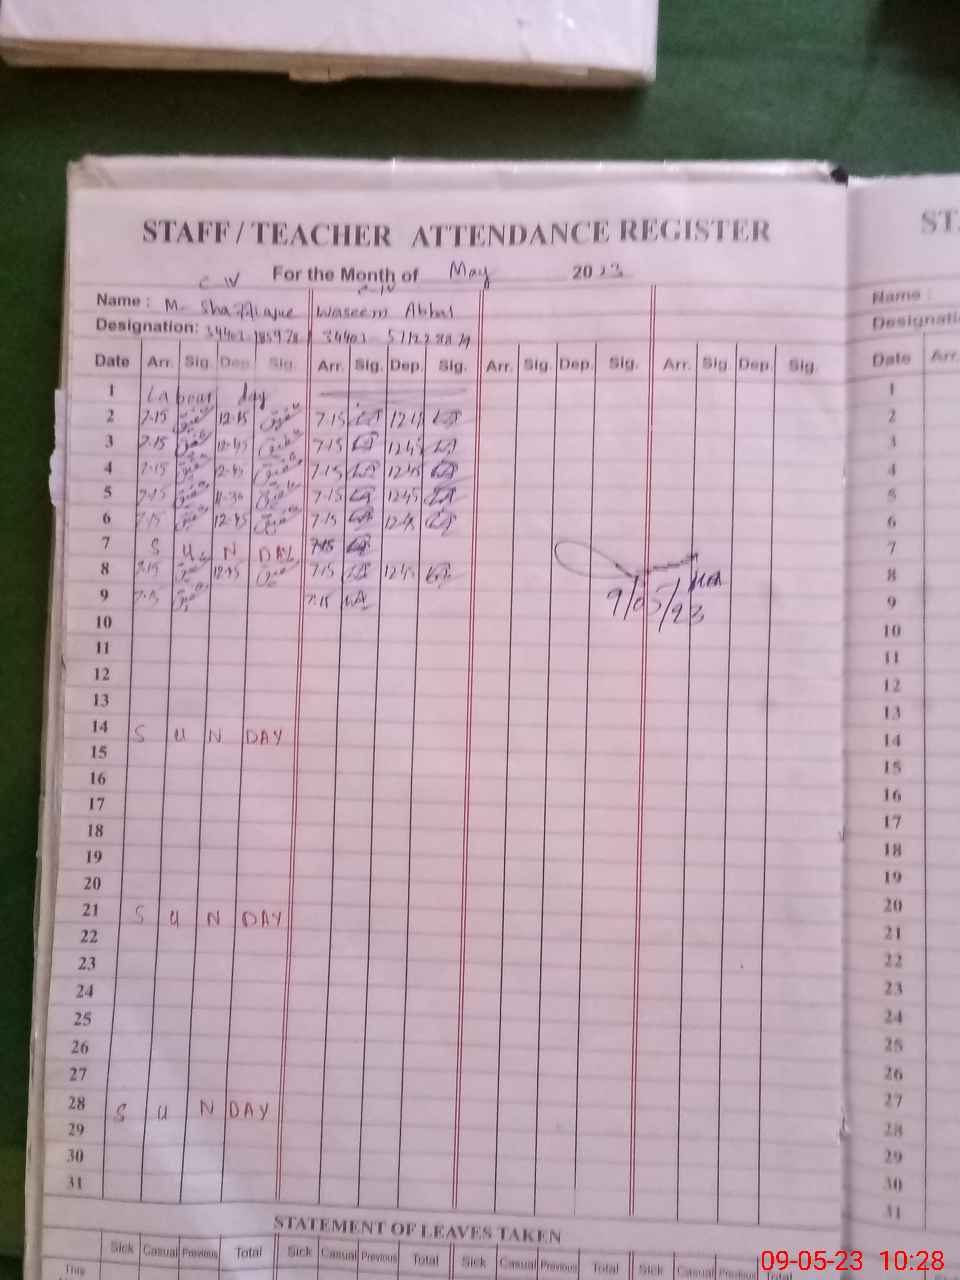 STAFF / TEACHER ATTENDANCE REGISTER
ST
C-IV For the Month of May 2023
C-IV
Name : M- Shaffique Waseem Abbas
Name :
Designation: 34402 34402
Date Arr. Sig. Dep. Sig. Arr. Sig. Dep. Sig. Arr. Sig. Dep. Sig. Arr. Sig. Dep. Sig.
Date Arr.
1 Labour day 1
2 7-15 12-45 7-15 12-45 2
3 7-15 12-45 7-15 12-45 3
4 7-15 12-45 7-15 12-45 4
5 7-15 11-30 7-15 12-45 5
6 7-15 12-45 7-15 12-45 6
7 SUNDAY 7-15 7
8 7-15 12-45 7-15 12-45 8
9 7-15 7-15 9/05/23 9
10 10
11 11
12 12
13 13
14 SUNDAY 14
15 15
16 16
17 17
18 18
19 19
20 20
21 SUNDAY 21
22 22
23 23
24 24
25 25
26 26
27 27
28 SUNDAY 28
29 29
30 30
31 31
STATEMENT OF LEAVES TAKEN
Sick Casual Previous Total Sick Casual Previous Total Sick Casual Previous Total Sick Casual Previous Total
This
09-05-23 10:28